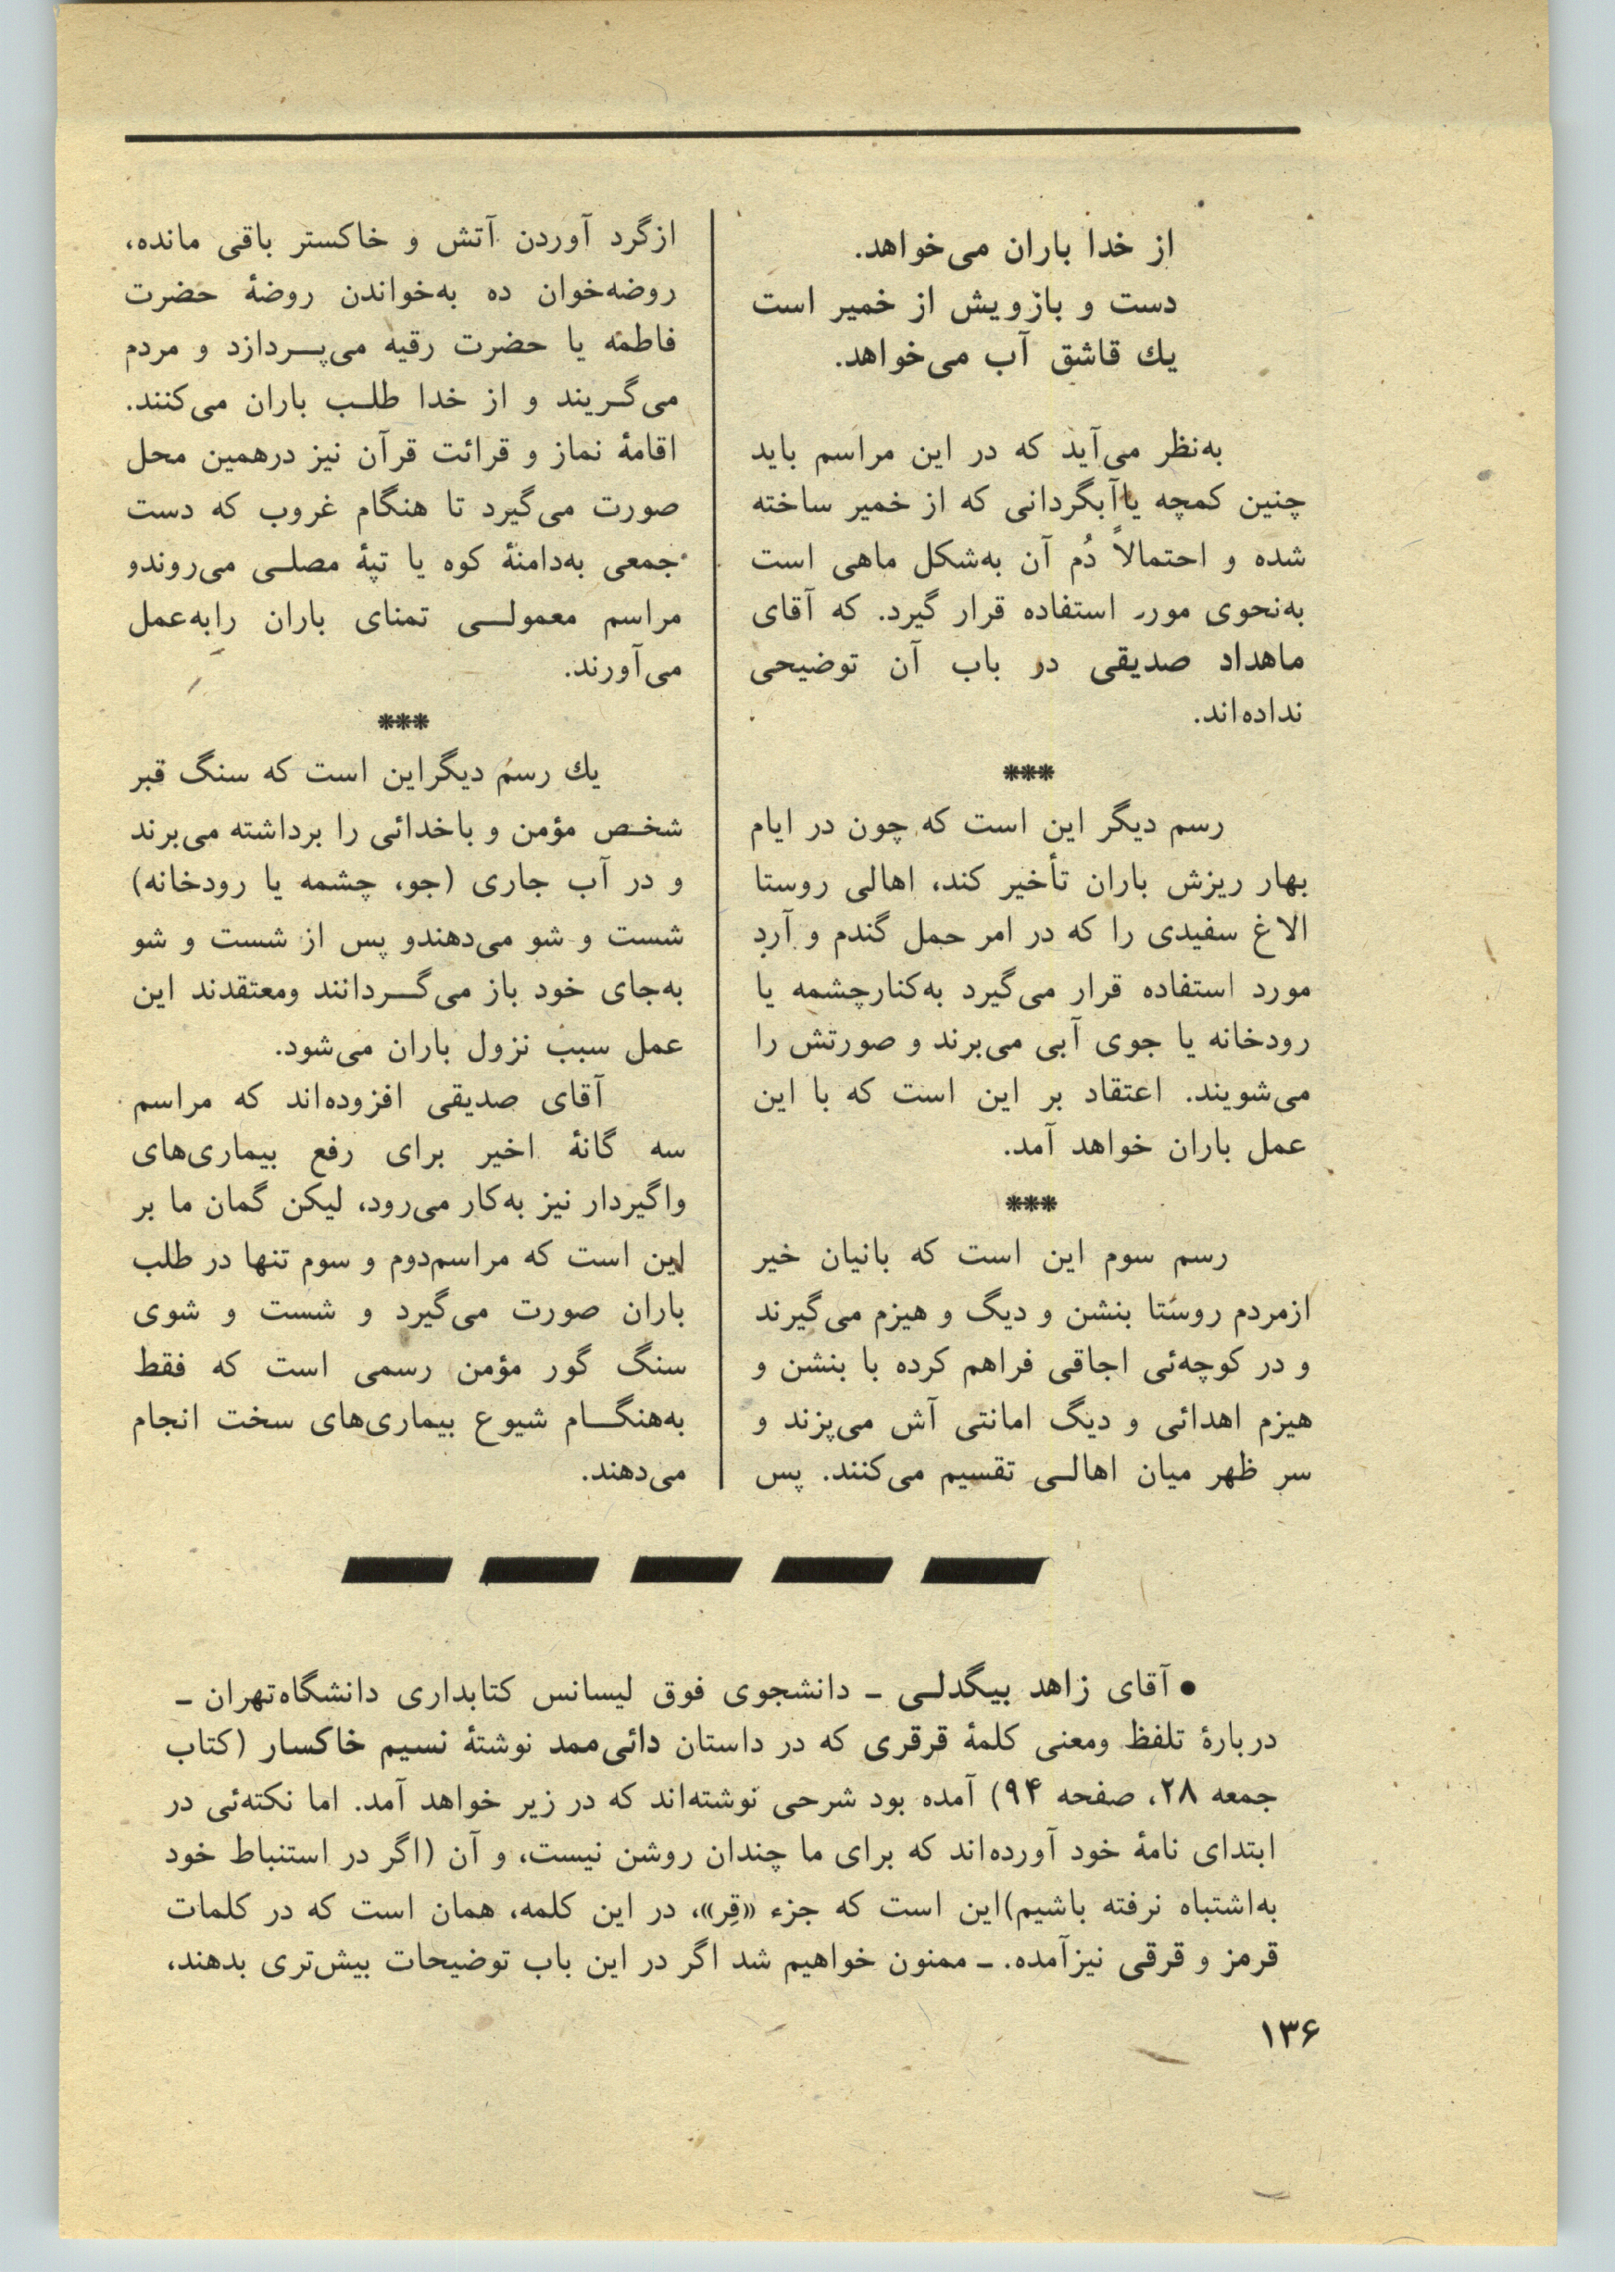 از خدا باران می‌خواهد.
دست و بازویش از خمیر است
یك قاشق آب می‌خواهد.
به‌نظر می‌آید که در این مراسم باید
چنین کمچه یاآبگردانی که از خمیر ساخته
شده و احتمالاً دُم آن به‌شکل ماهی است
به‌نحوی مورد استفاده قرار گیرد. که آقای
ماهداد صدیقی در باب آن توضیحی
نداده‌اند.
***
رسم دیگر این است که چون در ایام
بهار ریزش باران تأخیر کند، اهالی روستا
الاغ سفیدی را که در امر حمل گندم و آرد
مورد استفاده قرار می‌گیرد به‌کنارچشمه یا
رودخانه یا جوی آبی می‌برند و صورتش را
می‌شویند. اعتقاد بر این است که با این
عمل باران خواهد آمد.
***
رسم سوم این است که بانیان خیر
ازمردم روستا بنشن و دیگ و هیزم می‌گیرند
و در کوچه‌ئی اجاقی فراهم کرده با بنشن و
هیزم اهدائی و دیگ امانتی آش می‌پزند و
سر ظهر میان اهالی تقسیم می‌کنند. پس
ازگرد آوردن آتش و خاکستر باقی مانده،
روضه‌خوان ده به‌خواندن روضهٔ حضرت
فاطمه یا حضرت رقیه می‌پردازد و مردم
می‌گریند و از خدا طلب باران می‌کنند.
اقامهٔ نماز و قرائت قرآن نیز درهمین محل
صورت می‌گیرد تا هنگام غروب که دست
جمعی به‌دامنهٔ کوه یا تپهٔ مصلی می‌روندو
مراسم معمولی تمنای باران رابه‌عمل
می‌آورند.
***
یك رسم دیگراین است که سنگ قبر
شخص مؤمن و باخدائی را برداشته می‌برند
و در آب جاری (جو، چشمه یا رودخانه)
شست و شو می‌دهندو پس از شست و شو
به‌جای خود باز می‌گردانند ومعتقدند این
عمل سبب نزول باران می‌شود.
آقای صدیقی افزوده‌اند که مراسم
سه گانهٔ اخیر برای رفع بیماری‌های
واگیردار نیز به‌کار می‌رود، لیکن گمان ما بر
این است که مراسم‌دوم و سوم تنها در طلب
باران صورت می‌گیرد و شست و شوی
سنگ گور مؤمن رسمی است که فقط
به‌هنگام شیوع بیماری‌های سخت انجام
می‌دهند.
● آقای زاهد بیگدلی ـ دانشجوی فوق لیسانس کتابداری دانشگاه‌تهران ـ
دربارهٔ تلفظ ومعنی کلمهٔ قرقری که در داستان دائی‌ممد نوشتهٔ نسیم خاکسار (کتاب
جمعه ۲۸، صفحه ۹۴) آمده بود شرحی نوشته‌اند که در زیر خواهد آمد. اما نکته‌ئی در
ابتدای نامهٔ خود آورده‌اند که برای ما چندان روشن نیست، و آن (اگر در استنباط خود
به‌اشتباه نرفته باشیم)این است که جزء «قِر»، در این کلمه، همان است که در کلمات
قرمز و قرقی نیزآمده. ـ ممنون خواهیم شد اگر در این باب توضیحات بیش‌تری بدهند،
۱۳۶